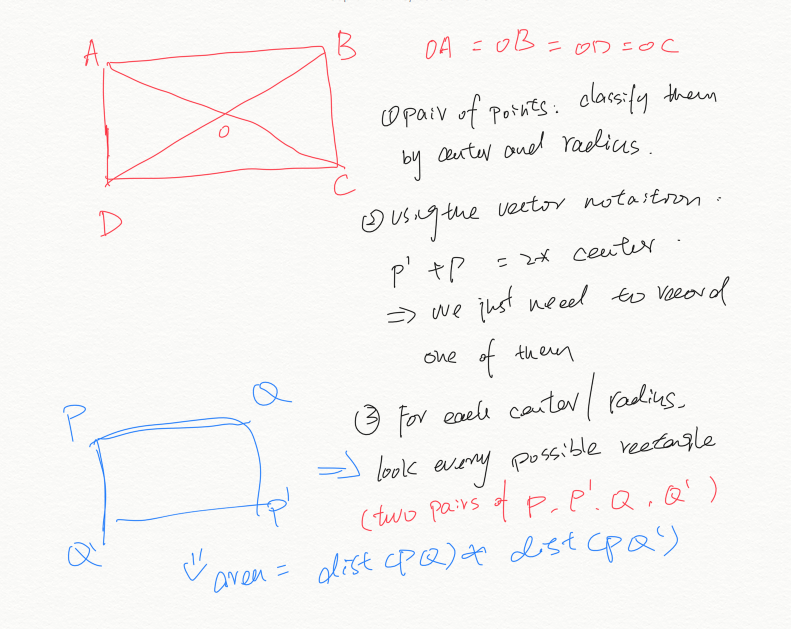 A
B
O
D
C
OA = OB = OD = OC
① pair of points: classify them
by center and radius.
② Using the vector notaition.
P' + P = 2* center.
⇒ we just need to record
one of them
③ For each center/radius.
⇒ look every possible rectangle
(two pairs of P, P', Q, Q')
P
Q
P'
Q'
area = dist(PQ) * dist(PQ')